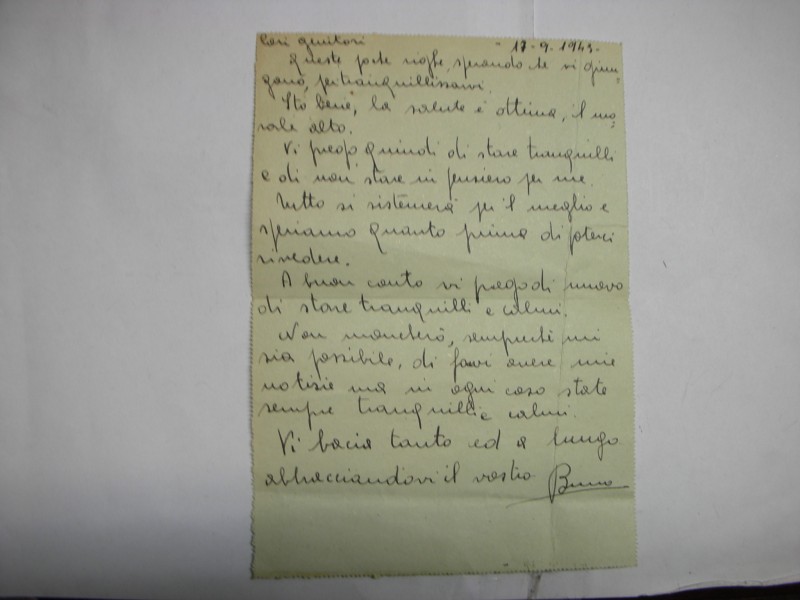 Cari genitori 17-9-1943-
Queste poche righe, sperando che vi giun-
gano, per tranquillizzarvi.
Sto bene, la salute è ottima, il mo-
rale alto.
Vi prego quindi di stare tranquilli
e di non stare in pensiero per me.
Tutto si sistemerà per il meglio e
speriamo quanto prima di poterci
rivedere.
A buon conto vi prego di nuovo
di stare tranquilli e calmi.
Non mancherò, sempreché mi
sia possibile, di farvi avere mie
notizie ma in ogni caso state
sempre tranquilli e calmi.
Vi bacia tanto ed a lungo
abbracciandovi il vostro Bruno